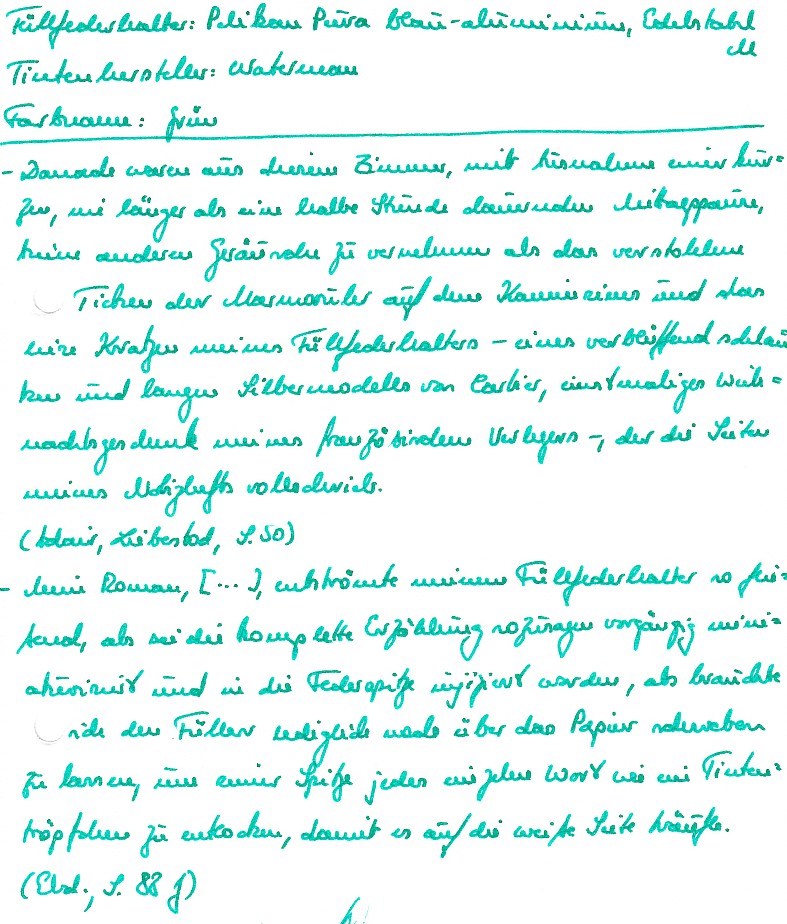 Füllfederhalter: Pelikan Pura blau-aluminium, Edelstahl
M
Tintenhersteller: Waterman
Farbname: Grün
- Danach waren aus diesem Zimmer, mit Ausnahme einer kur=
zen, nie länger als eine halbe Stunde dauernden Mittagspause,
keine anderen Geräusche zu vernehmen als das verstohlene
Ticken der Marmoruhr auf dem Kaminsims und das
leise Kratzen meines Füllfederhalters – eines verblüffend schlan
ken und langen Silbermodells von Cartier, einstmaliges Weih=
nachtsgeschenk meines französischen Verlegers –, der die Seiten
meines Notizhefts vollschrieb.
(Adair, Liebestod, S. 50)
- Mein Roman, [...], entströmte meinem Füllfederhalter so
, als sei die komplette Erzählung sozusagen vorgängig mini=
aturisiert und in die Federspitze injiziert worden, als brauchte
ich den Füller lediglich noch über das Papier schweben
zu lassen, um seiner Spitze jedes einzelne Wort wie ein Tinten=
tröpfchen zu entlocken, damit es auf die weiße Seite
(Ebd., S. 88 f)